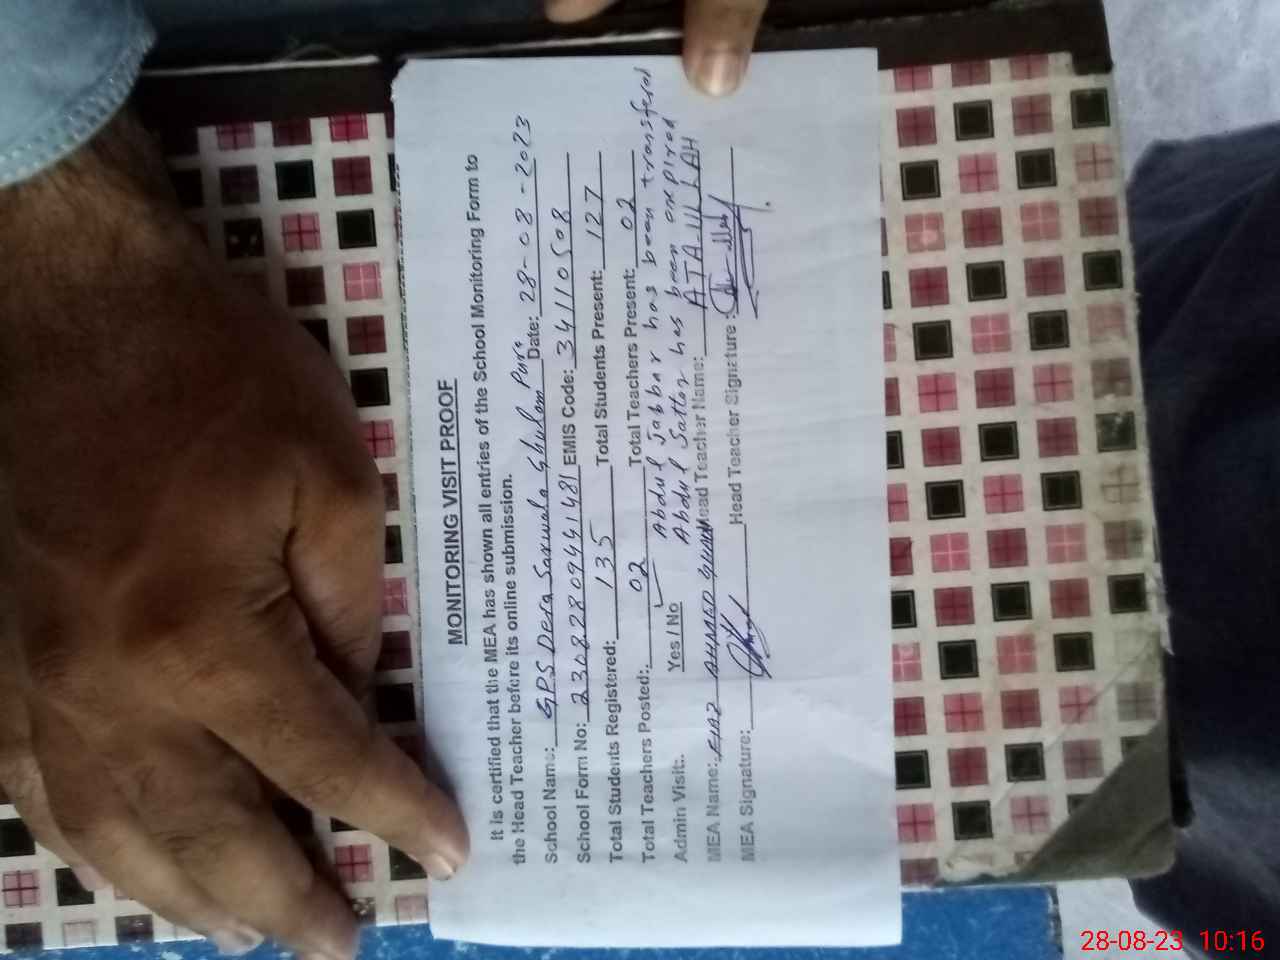 MONITORING VISIT PROOF
It is certified that the MEA has shown all entries of the School Monitoring Form to
the Head Teacher before its online submission.
School Name: GPS Dera Sarwala Ghulam Pura Date: 28-08-2023
School Form No: 23082809441481 EMIS Code: 34110508
Total Students Registered: 135 Total Students Present: 127
Total Teachers Posted: 02 Total Teachers Present: 02
Abdul Jabbar has been transferad
Admin Visit: Yes / No Abdul Sattar has been onepired
MEA Name: AHMAD Head Teacher Name: ATA ULLAH
MEA Signature: Head Teacher Signature:
28-08-23 10:16